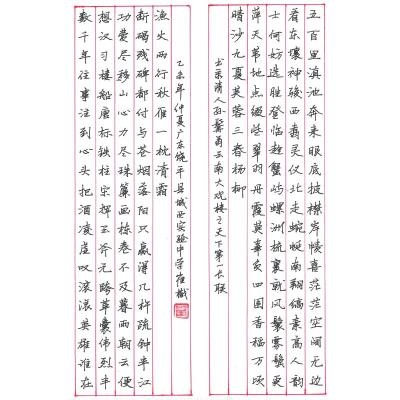 五百里滇池奔来眼底披襟岸帻喜茫茫空阔无边
看东骧神骏西翥灵仪北走蜿蜒南翔缟素高人韵
士何妨选胜登临趁蟹屿螺洲梳裹就风鬟雾鬓更
萍天苇地点缀些翠羽丹霞莫辜负四围香稻万顷
晴沙九夏芙蓉三春杨柳
书录清人孙髯翁云南大观楼之天下第一长联
数千年往事注到心头把酒凌虚叹滚滚英雄谁在
想汉习楼船唐标铁柱宋挥玉斧元跨革囊伟烈丰
功费尽移山心力尽珠帘画栋卷不及暮雨朝云便
断碣残碑都付与苍烟落阳只赢得几杵疏钟半江
渔火两行秋雁一枕清霜
乙未年仲夏广东饶平县城西实验中学